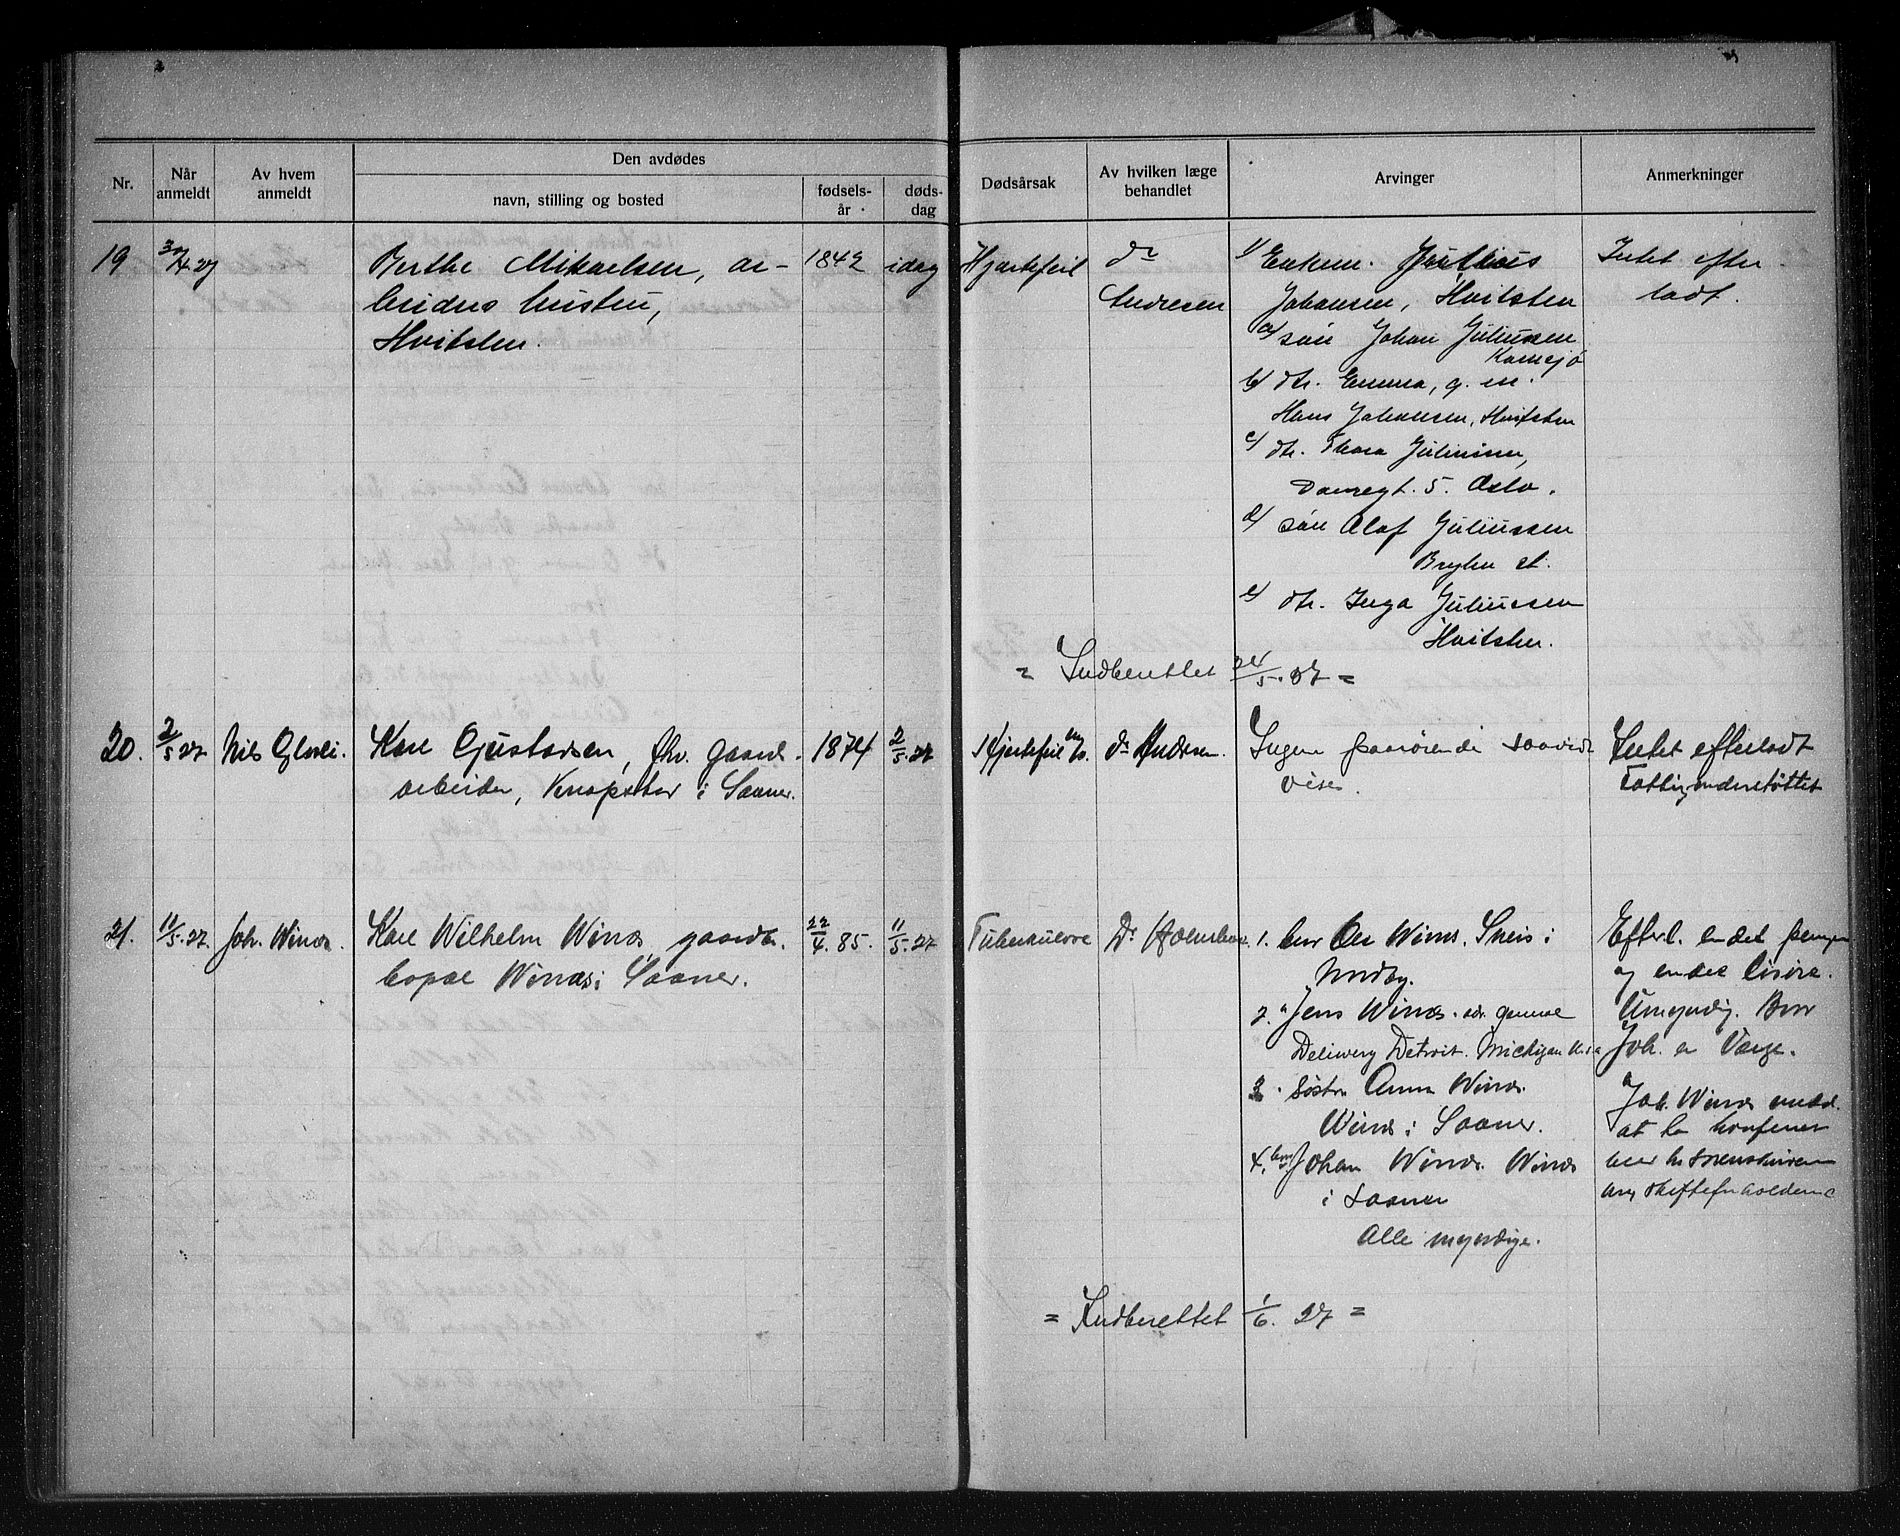 Nr.
Når anmeldt
Av hvem anmeldt
Den avdødes
navn, stilling og bosted
fødsels-år
døds-dag
Dødsårsak
Av hvilken læge behandlet
Arvinger
Anmerkninger
19 30/4 27
Berthe Mikaelsen, ar-
beiders hustru,
Hvitsten.
1842
idag
Hjertefeil
dr
Andresen
1/ Enkem. Julius
Johansen, Hvitsten
a/ søn Johan Juliussen
b/ dtr. Emma, g. m.
Hans Johansen, Hvitsten
c/ dtr. Thora Juliussen,
5. Oslo.
d/ søn Olaf Juliussen
Bryn st.
e/ dtr. Inga Juliussen
Hvitsten.
Intet efter
ladt.
= Indberettet 24/5. 27 =
20. 2/5 27 Nils
Karl Gustavsen, fhv. gaards-
arbeider, i Saaner.
1874
2/5. 27
Hjertefeil
dr Andresen.
Ingen paarørende saavidt
vides.
Intet efterladt
Fattigunderstøttet
21. 11/5. 27. Joh. Winæs.
Karl Wilhelm Winæs, gaardb.
bopæl Winæs i Saaner.
22/4. 85.
11/5. 27
Tuberkulose
Dr
1. bror Ole Winæs.
2. " Jens Winæs. adr. general
Deliwery Detroit. Michigan
3. Søster Anna Winæs.
Winæs i Saaner.
4. bror Johan Winæs. Winæs
i Saaner
Alle myndige.
Efterl. endel penger
og endel løsøre.
Umyndig. Bror
Joh. er Værge.
Joh. Winæs
at
skifteforholdene
= Indberettet 1/6. 27 =